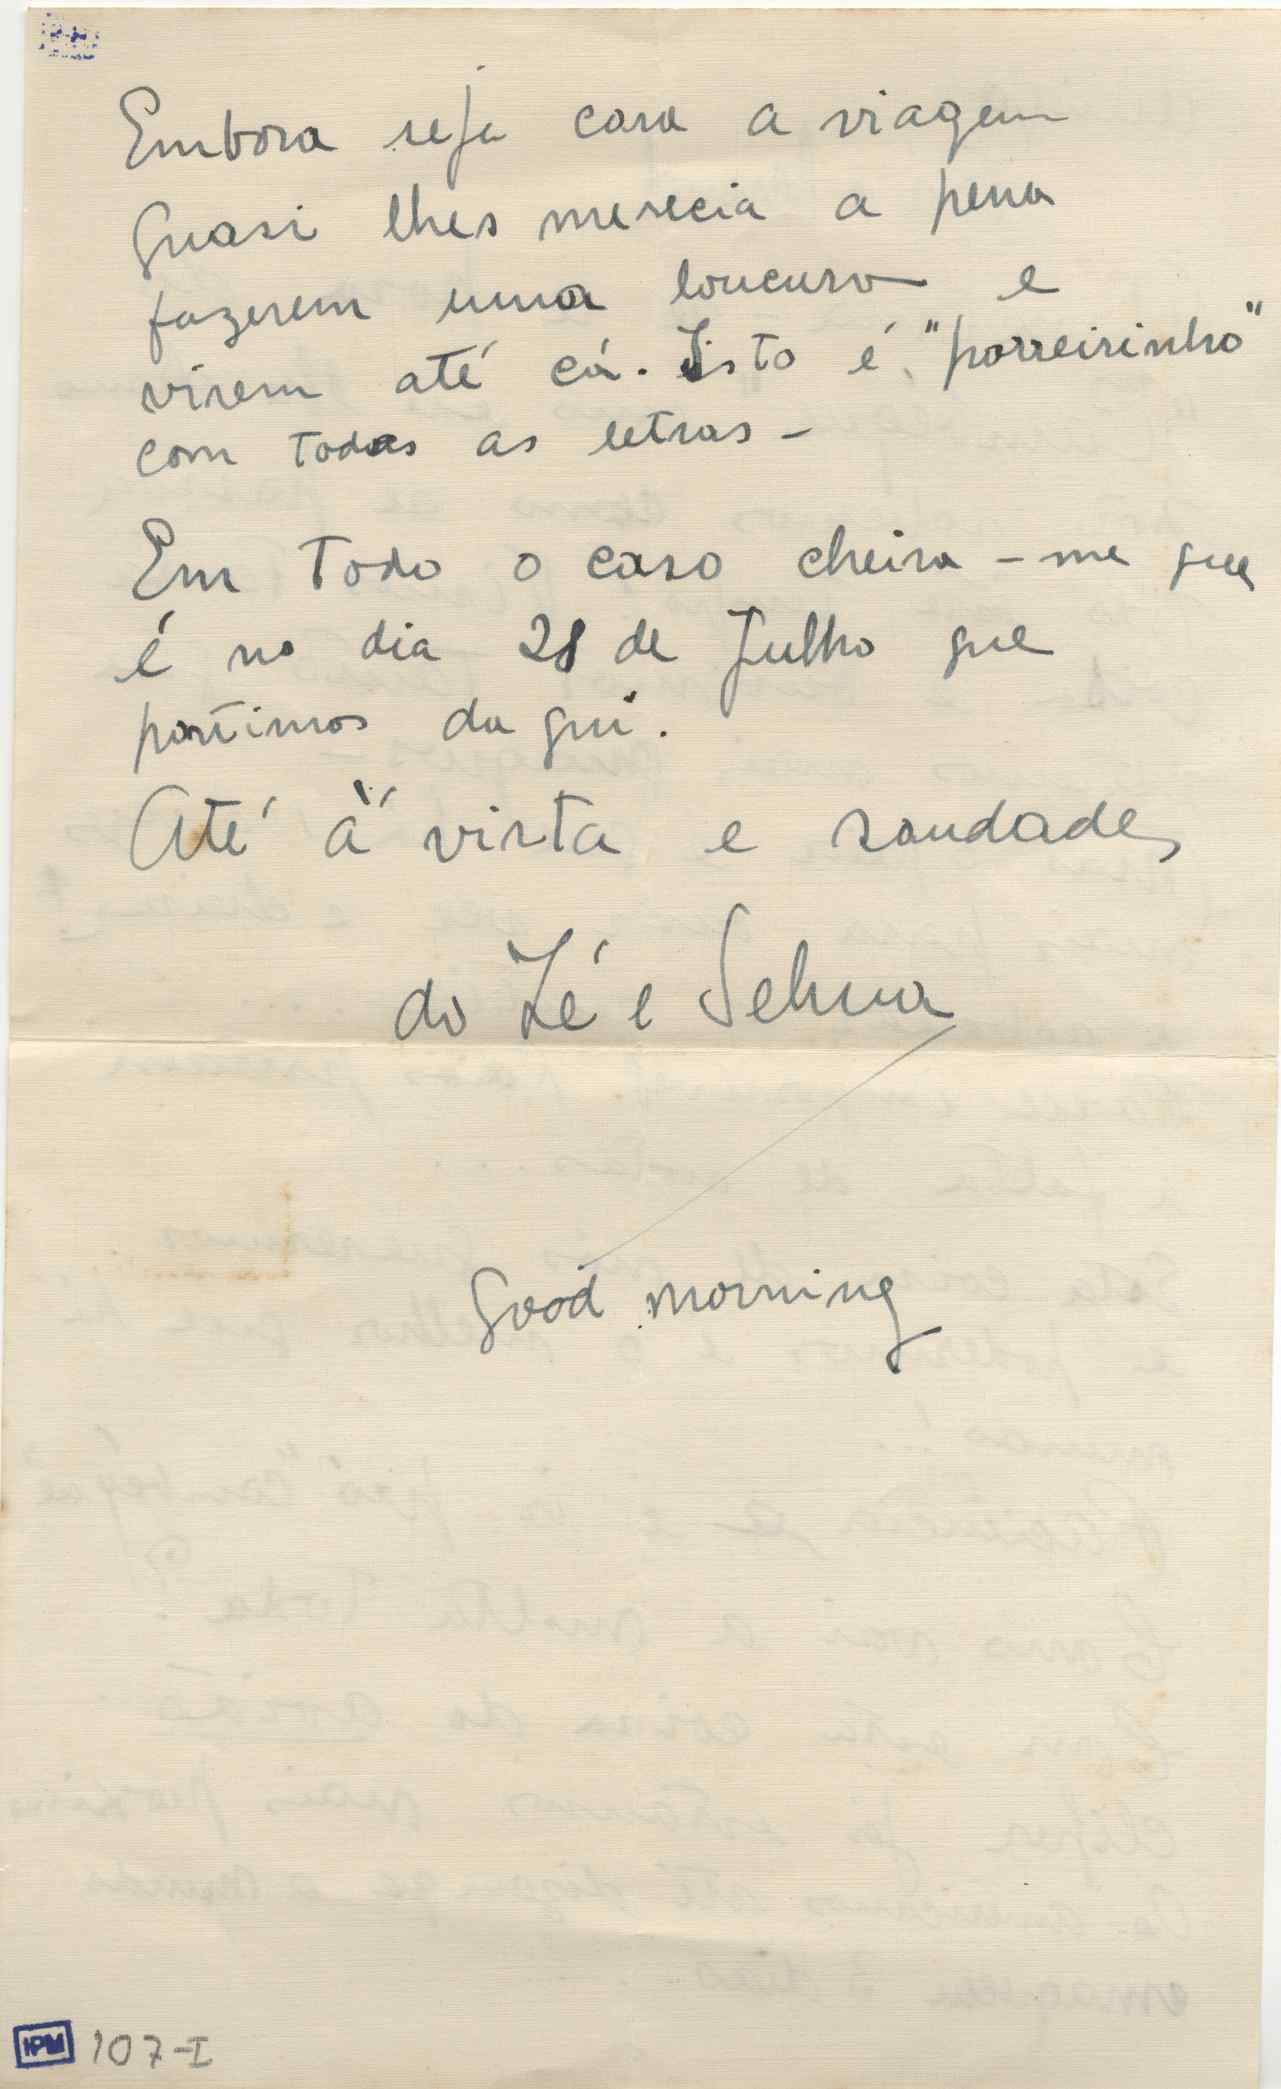 Embora seja cara a viagem
Quasi lhes merecia a pena
fazerem uma loucura e
virem até cá. Isto é "porreirinho"
com todas as letras -
Em todo o caso cheira-me que
é no dia 28 de Julho que
partimos daqui.
Até à vista e saudades
do Zé e Selma
Good morning
IPM 107-I